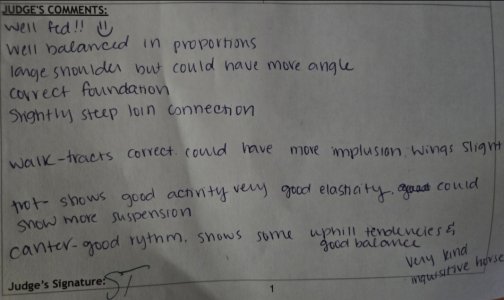 JUDGE'S COMMENTS:
Well fed!! ☺
Well balanced in proportions
large shoulder but could have more angle
correct foundation
slightly steep loin connection
walk - tracts correct. could have more implusion. wings slight
trot - shows good activity very good elasticity, could
show more suspension
canter - good rythm, shows some uphill tendencies &
good balance
very kind
inquisitive horse
Judge's Signature: ST
1